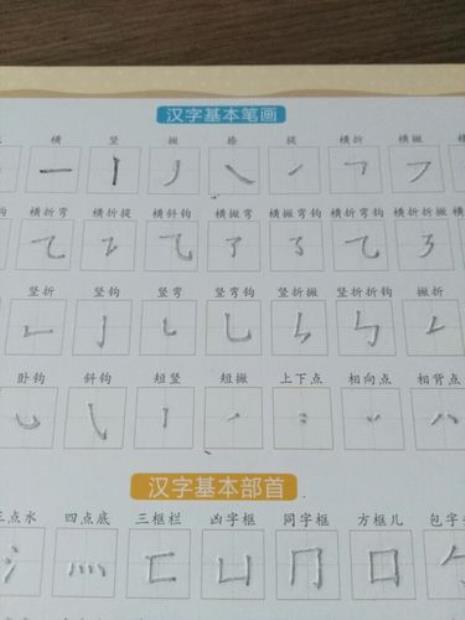 汉字基本笔画
横 竖 撇 捺 提 横折 横撇
钩 横折弯 横折提 横斜钩 横撇弯 横撇弯钩 横折弯钩 横折折撇 横
竖折 竖钩 竖弯 竖弯钩 竖折撇 竖折折钩 撇折
卧钩 斜钩 短竖 短撇 上下点 相向点 相背点
汉字基本部首
三点水 四点底 三框栏 凶字框 同字框 方框儿 包字